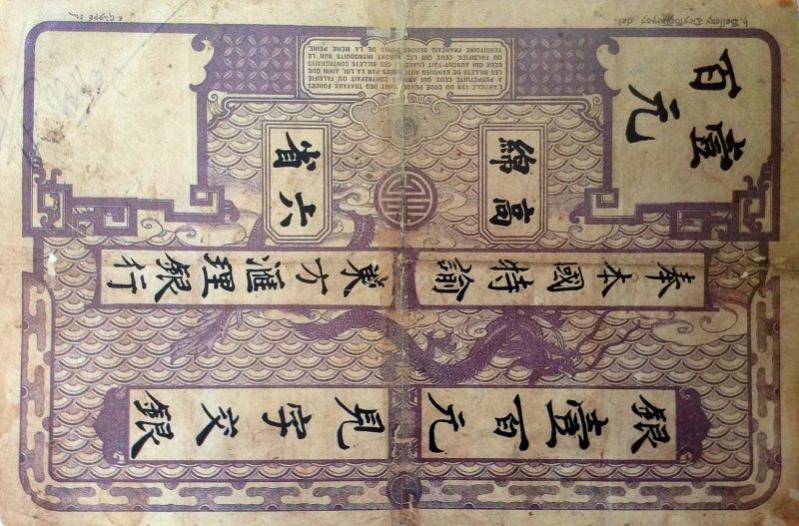 銀壹百元
見字交銀
奉本國特諭
東方滙理銀行
高綿
六省
壹百元
L'ARTICLE 139 DU CODE PÉNAL PUNIT DES TRAVAUX FORCÉS
À PERPÉTUITÉ CEUX QUI AURONT CONTREFAIT OU FALSIFIÉ
LES BILLETS DE BANQUES AUTORISÉES PAR LA LOI, AINSI QUE
CEUX QUI AURONT FAIT USAGE DE CES BILLETS CONTREFAITS
OU FALSIFIÉS. CEUX QUI LES AURONT INTRODUITS SUR LE
TERRITOIRE FRANÇAIS SERONT PUNIS DE LA MÊME PEINE.
H. Bellery Desfontaines del.